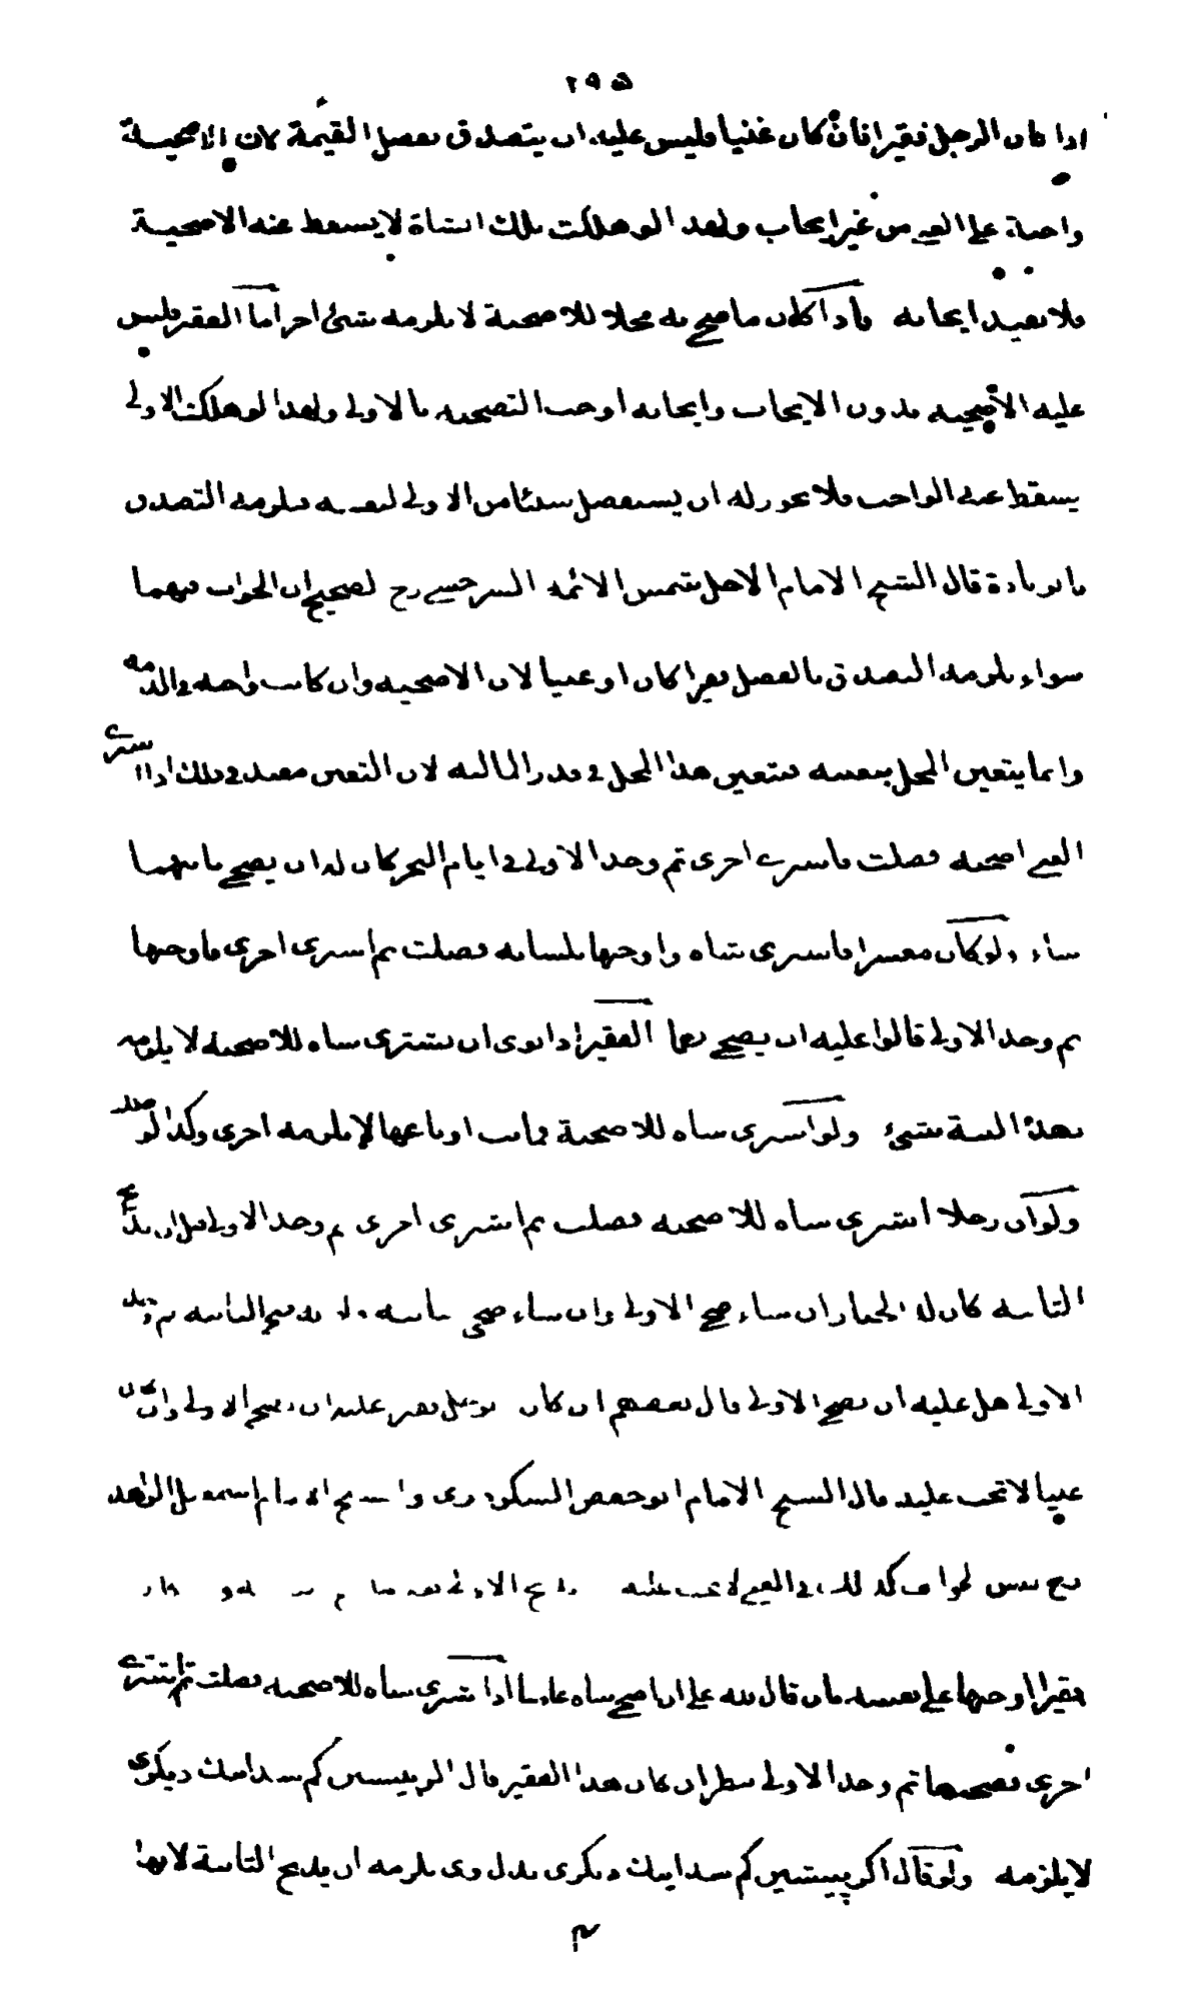 ٢٩٥
اذا كان الرجل فقيرا فان كان غنيا فليس عليه ان يتصدق بفضل القيمة لان الاضحية
واجبة على الغني من غير ايجاب ولهذا لو هلكت تلك الشاة لا يسقط عنه الاضحية
فلا يفيد ايجابه فاذا كان ما ضحى به محلا للاضحية لا يلزمه شئ اخر اما الفقير فليس
عليه الاضحية بدون الايجاب وايجابه اوجب التضحية بالاولى ولهذا لو هلكت الاولى
يسقط عنه الواجب فلا يجوز له ان يستفضل شيئا من الاولى لنفسه فيلزمه التصدق
بالزيادة قال الشيخ الامام الاجل شمس الائمة السرخسي رح لصحيح ان الجواب فيهما
سواء يلزمه التصدق بالفضل فقيرا كان او غنيا لان الاضحية وان كانت واجبة في الذمة
وانما يتعين المحل بتعينه فيتعين هذا المحل في قدر المالية لان التعين مفيد في ذلك اذا اشترى
الغني اضحية فضلت فاشترى اخرى ثم وجد الاولى في ايام النحر كان له ان يضحي بايتهما
شاء ولو كان معسرا فاشترى شاة واوجبها بلسانه فضلت ثم اشترى اخرى فاوجبها
ثم وجد الاولى قالوا عليه ان يضحي بهما الفقير اذا نوى ان يشتري شاة للاضحية لا يلزمه
بهذه النية شئ ولو اشترى شاة للاضحية فماتت او باعها لا يلزمه اخرى وكذا لو ضلت
ولو ان رجلا اشترى شاة للاضحية فضلت ثم اشترى اخرى ثم وجد الاولى قبل ان يذبح
الثانية كان له الخيار ان شاء ضحى الاولى وان شاء ضحى الثانية ضحى الثانية ثم وجد
الاولى هل عليه ان يضحي الاولى قال بعضهم ان كان الرجل فقير عليه ان يضحي الاولى وان كان
غنيا لا تجب عليه قال الشيخ الامام ابو حفص السكودري والشيخ الامام اسمعيل الزاهد
رح ليس الجواب كذلك في الغني لا تجب عليه
فقيرا اوجبها على نفسه بان قال لله علي ان اضحي شاة اذا اشترى شاة للاضحية فضلت ثم اشترى
اخرى فضحى بها ثم وجد الاولى ينظر ان كان هذا الفقير قال اگر پيشين گم شد ديگرى
لا يلزمه ولو قال اگر پيشين گم شد ديگرى بدل وى يلزمه ان يذبح الثانية لانها